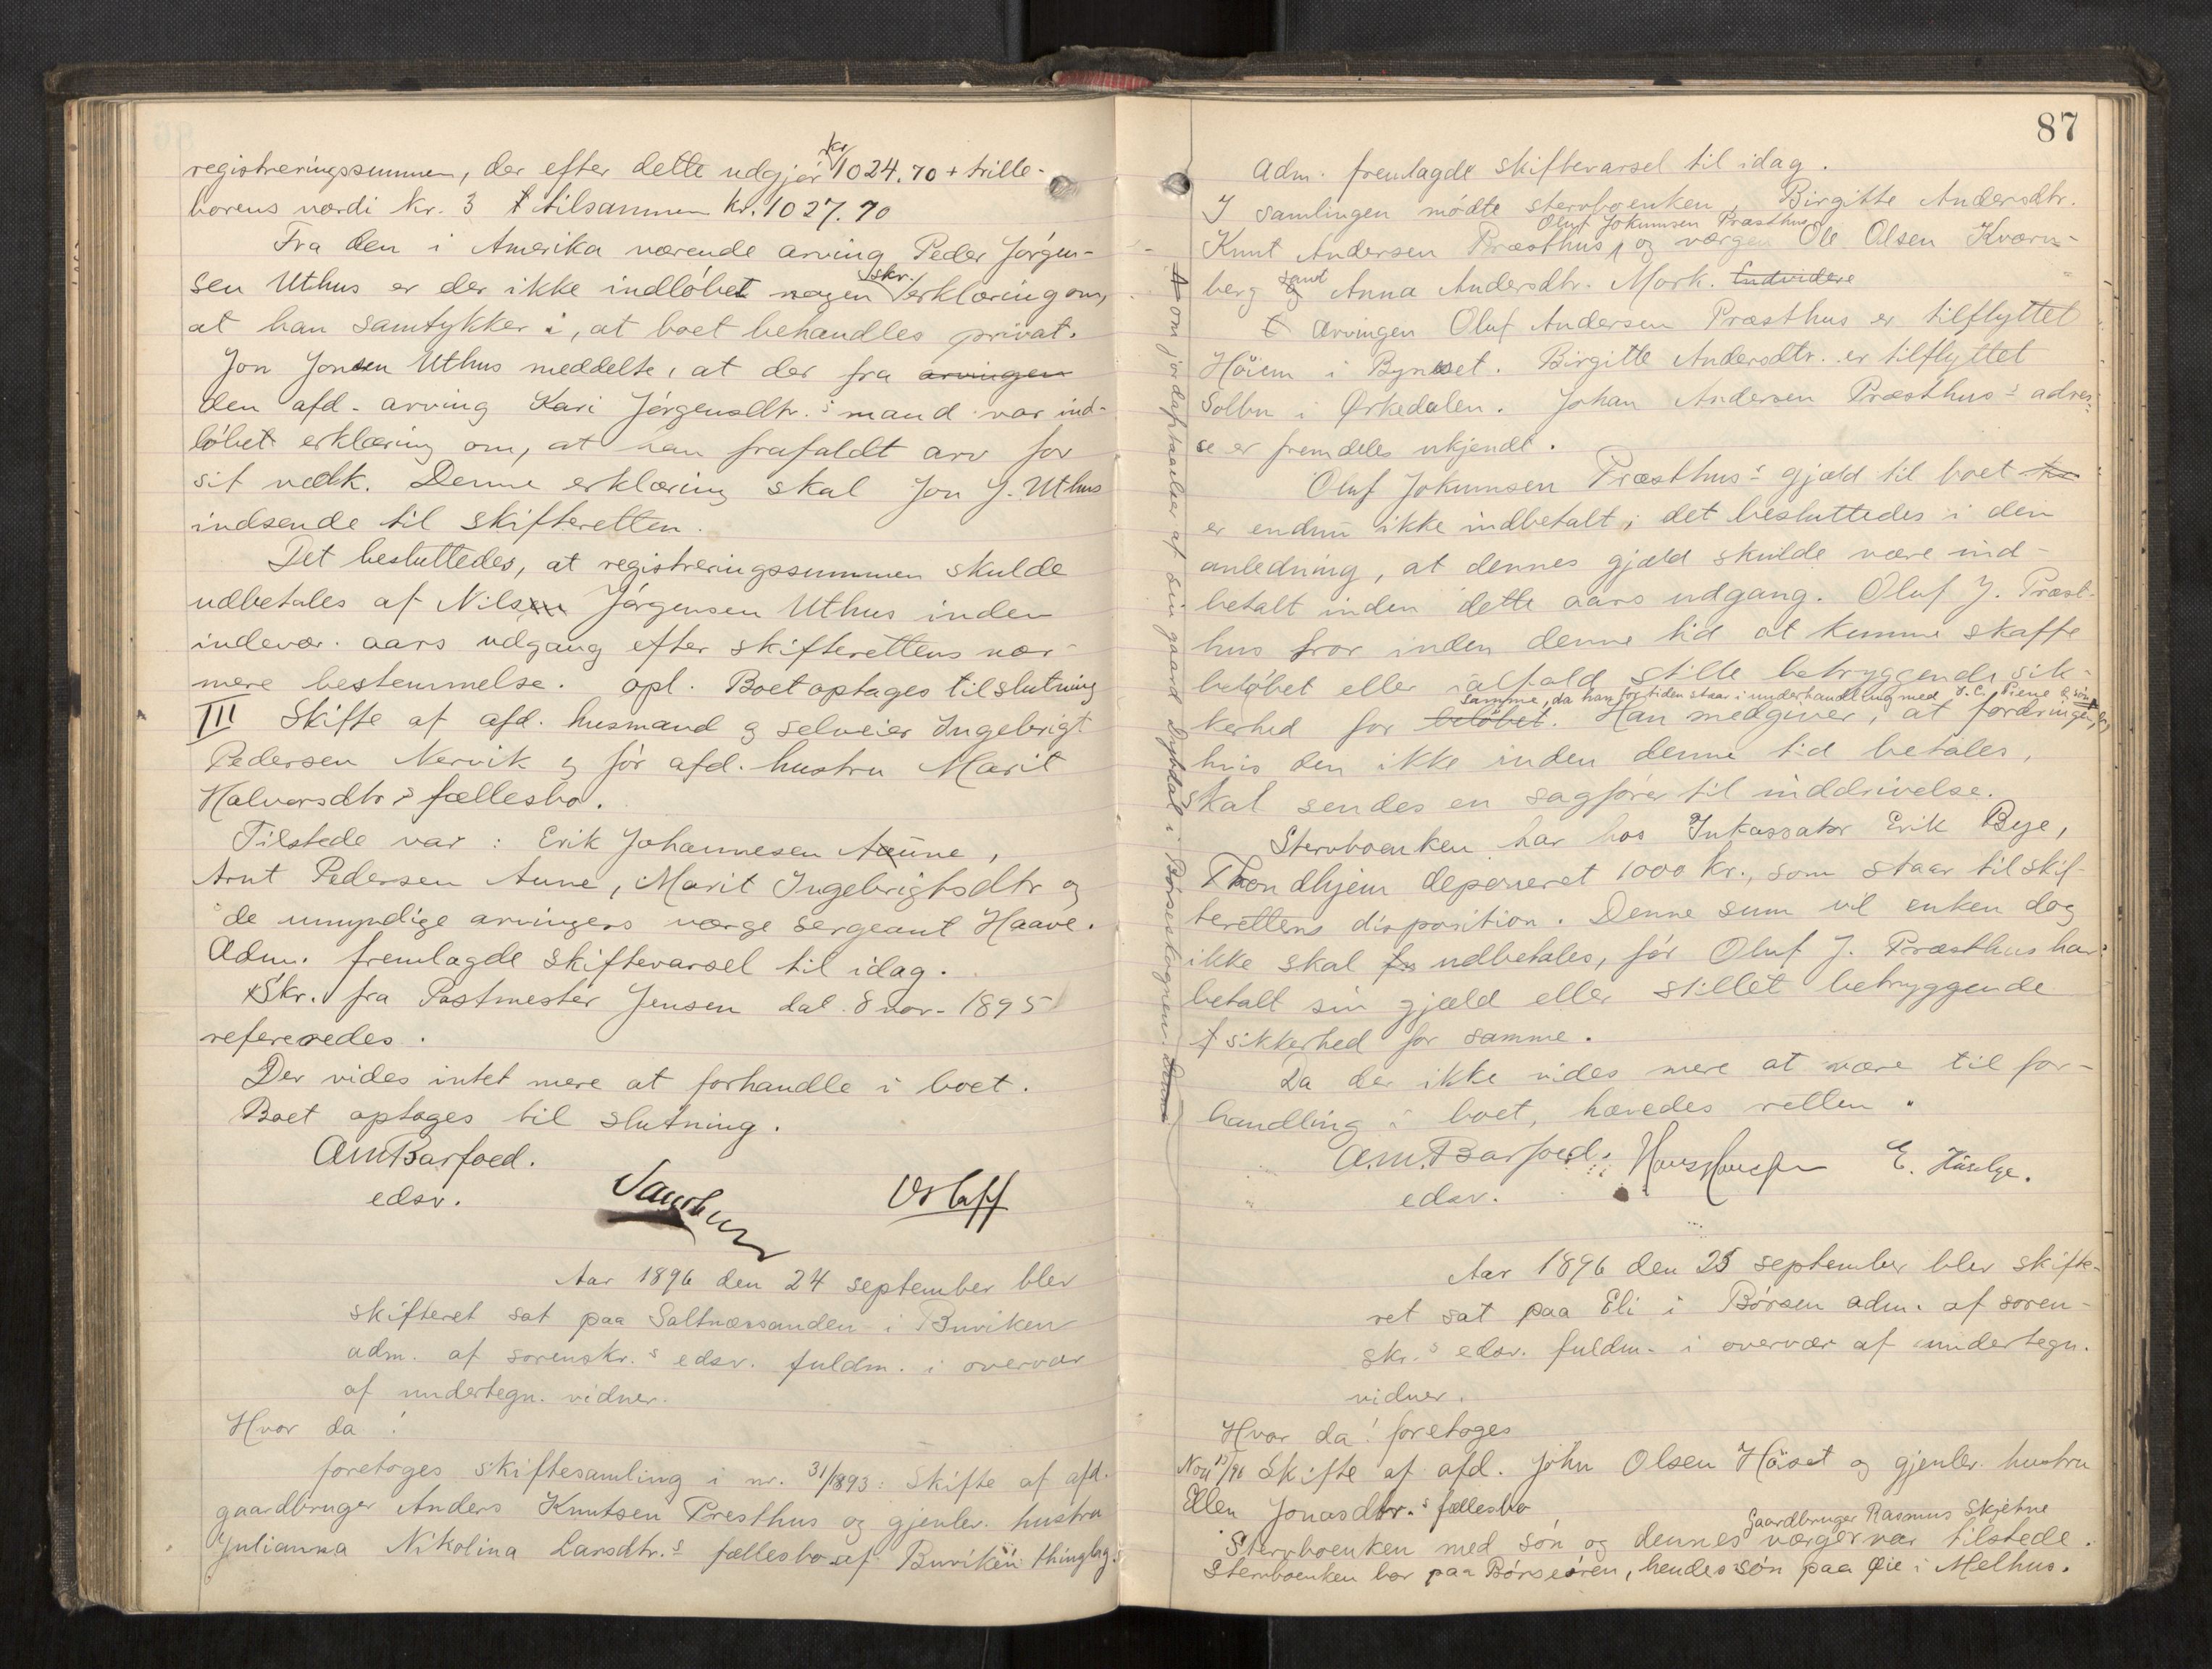 registreringssummen, der efter dette udgjør kr 1024.70 + trille-
borens værdi kr. 3 tilsammen kr. 1027.70
Fra den i Amerika værende arving Peder Jørgen-
sen Uthus er der ikke indløbet nogen skr. erklæring om,
at han samtykker i, at boet behandles privat.
Jon Jonsen Uthus meddelte, at der fra arvingen
den afd. arving Kari Jørgensdtr.s mand var ind-
løbet erklæring om, at han frafaldt arv for
sit vedk. Denne erklæring skal Jon J. Uthus
indsende til skifteretten.
Det besluttedes, at registreringssummen skulde
udbetales af Nils Jørgensen Uthus inden
indevær. aars udgang efter skifterettens nær-
mere bestemmelse. opl. Boet optages til slutning
III Skifte af afd. husmand og selveier Ingebrigt
Pedersen Nervik og før afd. hustru Marit
Halvorsdtr.s fællesbo.
Tilstede var: Erik Johannesen Aune,
Arnt Pedersen Aune, Marit Ingebrigtsdtr og
de umyndige arvingers værge sergeant Haave.
Adm. fremlagde skiftevarsel til idag.
Skr. fra Postmester Jensen dat. 8 nov. 1895
refereredes.
Der vides intet mere at forhandle i boet.
Boet optages til slutning.
AmBarfoed.
edsv.
Aar 1896 den 24 september blev
skifteret sat paa Saltnæssanden i Buviken
adm. af sorenskr.s edsv. fuldm. i overvær
af undertegn. vidner.
Hvor da!
foretoges skiftesamling i nr. 31/1893: Skifte af afd.
gaardbruger Anders Knutsen Presthus og gjenlev. hustru
Julianna Nikolina Larsdtr.s fællesbo af Buviken thinglag.
87
Adm. fremlagde skiftevarsel til idag.
I samlingen mødte stervboenken, Birgitte Andersdtr.
Oluf Jokumsen Præsthus
Knut Andersen Præsthus, og værgen Ole Olsen Kværn-
berg samt Anna Andersdtr. Mork. Endvidere
Arvingen Oluf Andersen Præsthus er tilflyttet
Høiem i Bynesset. Birgitte Andersdtr. er tilflyttet
Solbu i Ørkedalen. Johan Andersen Præsthus's adres-
se er fremdeles ukjendt.
Oluf Jokumsen Præsthus's gjæld til boet
er endnu ikke indbetalt; det besluttedes i den
anledning, at dennes gjæld skulde være ind-
betalt inden dette aars udgang. Oluf J. Præst-
hus tror inden denne tid at kunne skaffe
beløbet eller ialfald stille betryggende sik-
samme, da han for tiden staar i underhandling med
kerhed for beløbet. Han medgiver, at fordringen,
hvis den ikke inden denne tid betales,
skal sendes en sagfører til inddrivelse.
Stervboenken har hos Inkassator Erik Bye,
Throndhjem deponeret 1000 kr., som staar til skif-
terettens disposition. Denne sum vil enken dog
ikke skal udbetales, før Oluf J. Præsthus har
betalt sin gjæld eller stillet betryggende
sikkerhed for samme.
Da der ikke vides mere at være til for-
handling i boet, hævedes retten.
A.m. Barfoed.
edsv.
om jorddeftaalse af sin gaard Dybdal i Børseskognen
Aar 1896 den 25 september blev skifte-
ret sat paa Eli i Børsen adm. af soren-
skr.s edsv. fuldm. i overvær af undertegn.
vidner.
Hvor da! foretoges
Skifte af afd. John Olsen Høiset og gjenlev. hustru
Ellen Jonasdtr.s fællesbo
Gaardbruger Rasmus Skjetne
Stervboenken med søn og dennes værger var tilstede.
Stervboenken bor paa Børseøren, hendes søn paa Øie i Melhus.